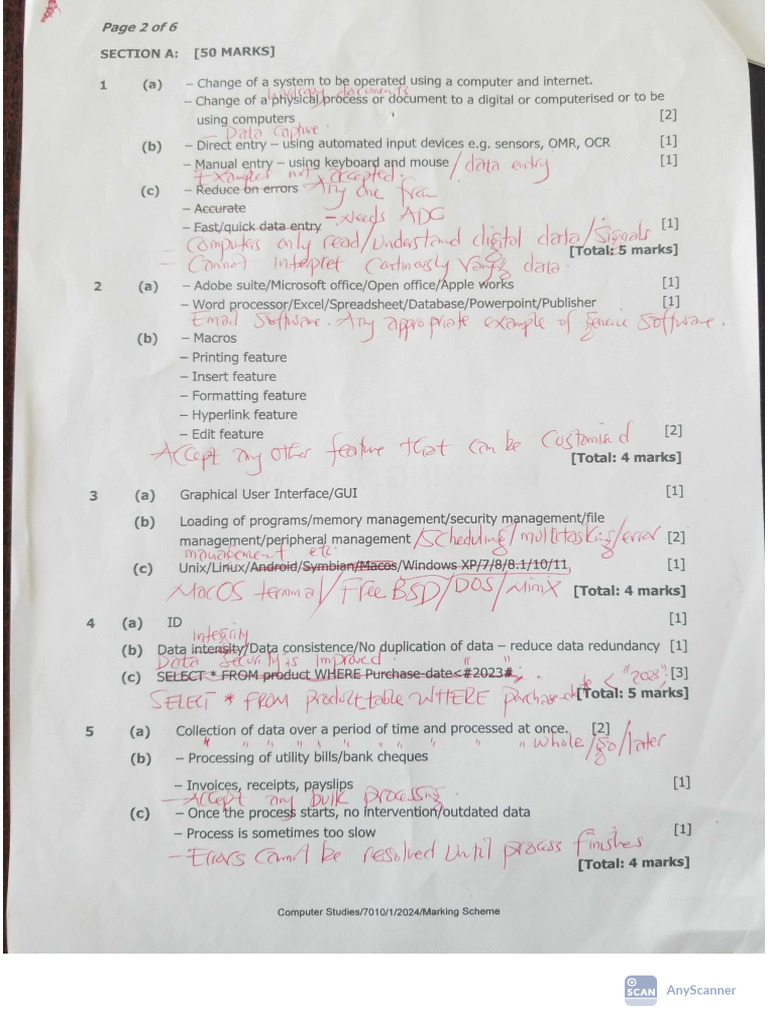 Page 2 of 6
SECTION A: [50 MARKS]
1 (a) – Change of a system to be operated using a computer and internet.
hardcopy documents
– Change of a physical process or document to a digital or computerised or to be
using computers [2]
– Data capture.
(b) – Direct entry – using automated input devices e.g. sensors, OMR, OCR [1]
– Manual entry – using keyboard and mouse / data entry [1]
Examples not accepted.
(c) – Reduce on errors Any one from
– Accurate – Needs ADC
– Fast/quick data entry [1]
– Computers only read/understand digital data/signals
[Total: 5 marks]
– Cannot interpret continously data.
2 (a) – Adobe suite/Microsoft office/Open office/Apple works [1]
– Word processor/Excel/Spreadsheet/Database/Powerpoint/Publisher [1]
Email software. Any appropriate example of generic software.
(b) – Macros
– Printing feature
– Insert feature
– Formatting feature
– Hyperlink feature
– Edit feature [2]
Accept any other feature that can be customised
[Total: 4 marks]
3 (a) Graphical User Interface/GUI [1]
(b) Loading of programs/memory management/security management/file
management/peripheral management /scheduling/multitasking/error [2]
management etc.
(c) Unix/Linux/Android/Symbian/Macos/Windows XP/7/8/8.1/10/11, [1]
MacOS terminal/Free BSD/DOS/MiniX [Total: 4 marks]
4 (a) ID [1]
integrity
(b) Data intensity/Data consistence/No duplication of data – reduce data redundancy [1]
Data security is improved.
(c) SELECT * FROM product WHERE Purchase-date<#2023# [3]
SELECT * FROM product table WHERE < "2023"
[Total: 5 marks]
5 (a) Collection of data over a period of time and processed at once. [2]
" " " " " " " " " whole/go/later
(b) – Processing of utility bills/bank cheques
– Invoices, receipts, payslips [1]
– Accept any bulk processing.
(c) – Once the process starts, no intervention/outdated data
– Process is sometimes too slow [1]
– Errors cannot be resolved until process finishes
[Total: 4 marks]
Computer Studies/7010/1/2024/Marking Scheme
SCAN AnyScanner